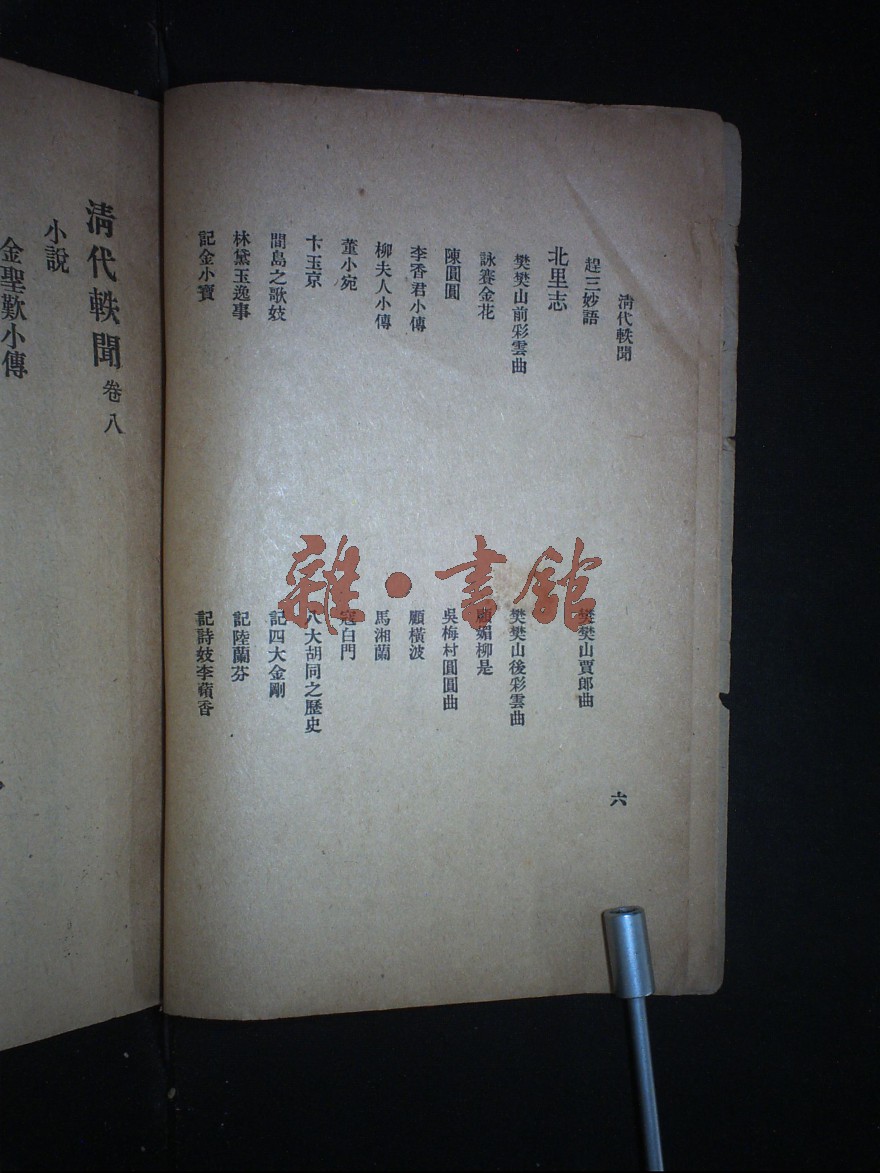 清代軼聞
六
趕三妙語
樊樊山賈郎曲
北里志
樊樊山前彩雲曲
樊樊山後彩雲曲
詠賽金花
顧媚柳是
陳圓圓
吳梅村圓圓曲
李香君小傳
顧橫波
柳夫人小傳
馬湘蘭
董小宛
寇白門
卞玉京
八大胡同之歷史
間島之歌妓
記四大金剛
林黛玉逸事
記陸蘭芬
記金小寶
記詩妓李蘋香
清代軼聞 卷八
小說
金聖歎小傳
雜·書館